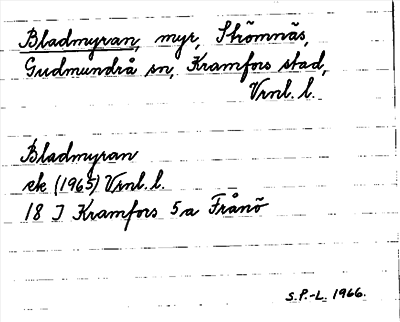 Bladmyran, myr, Strömnäs,
Gudmundrå sn, Kramfors stad,
Vrnl. l.
Bladmyran
ek (1965) Vrnl. l.
18 I Kramfors 5a Frånö
S.P.-L. 1966.